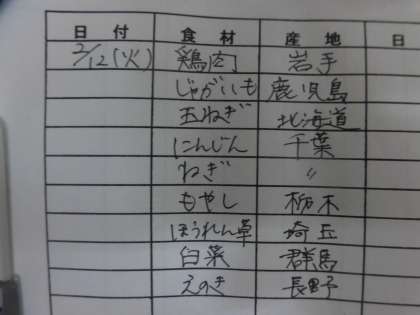 日 付 食 材 産 地 日
2/12(火) 鶏肉 岩手
じゃがいも 鹿児島
玉ねぎ 北海道
にんじん 千葉
ねぎ 〃
もやし 栃木
ほうれん草 埼玉
白菜 群馬
えのき 長野